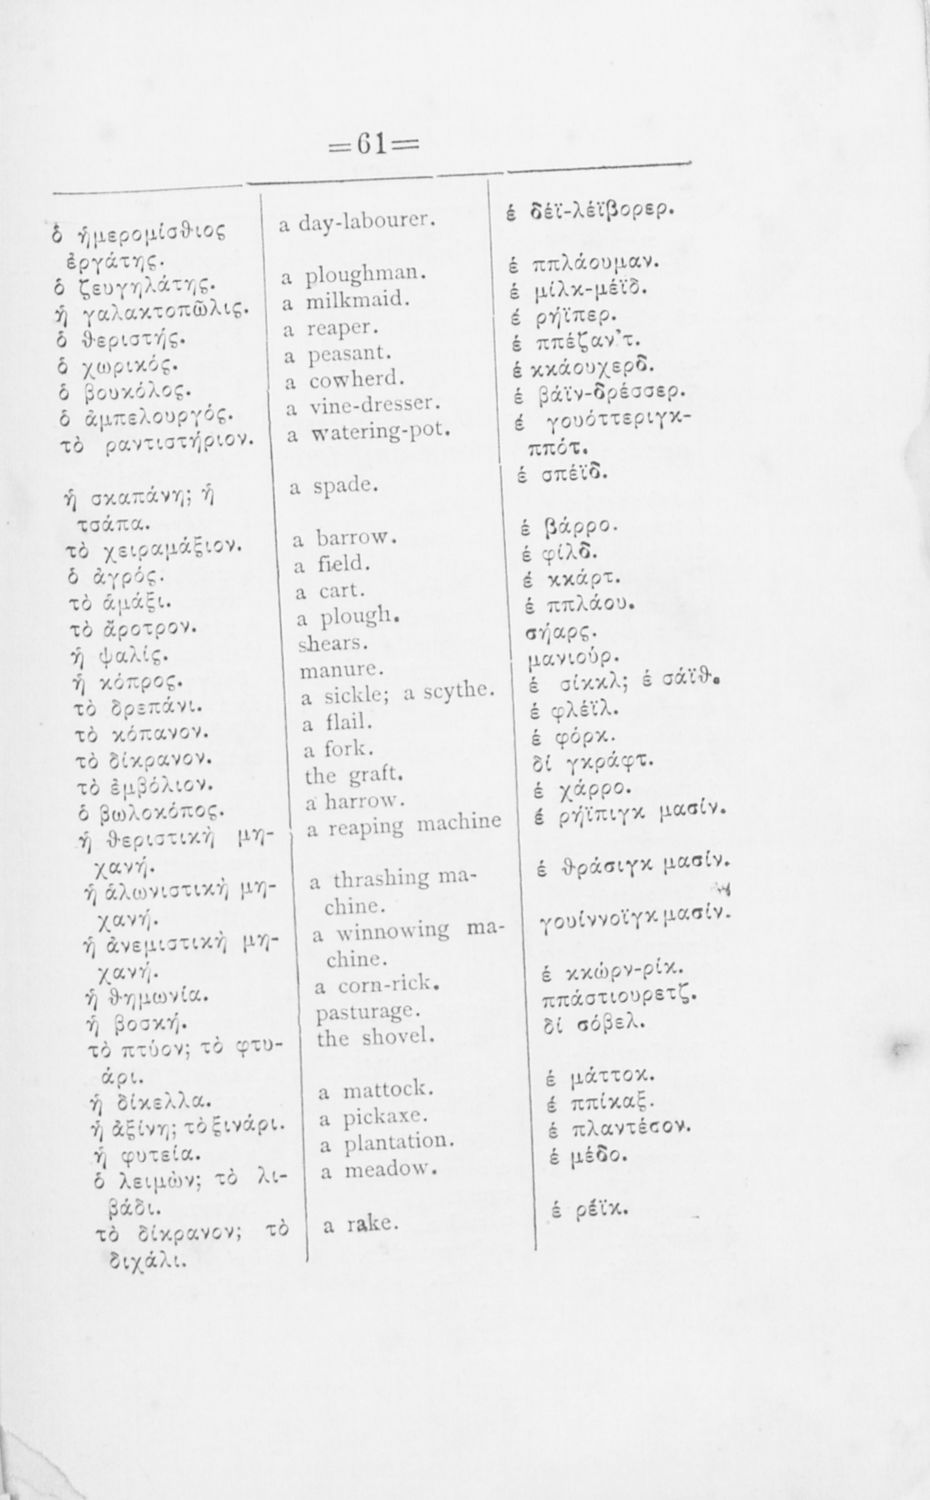 =61=
ὁ ἡμερομίσθιος a day-labourer. ἐ δέϊ-λέϊβορερ.
ἐργάτης.
ὁ ζευγηλάτης. a ploughman. ἐ ππλάουμαν.
ἡ γαλακτοπῶλις. a milkmaid. ἐ μίλκ-μέϊδ.
ὁ θεριστής. a reaper. ἐ ρήϊπερ.
ὁ χωρικός. a peasant. ἐ ππέζαν'τ.
ὁ βουκόλος. a cowherd. ἐ κκάουχερδ.
ὁ ἀμπελουργός. a vine-dresser. ἐ βάϊν-δρέσσερ.
τὸ ραντιστήριον. a watering-pot. ἐ γουόττεριγκ-
ππότ.
ἡ σκαπάνη; ἡ a spade. ἐ σπέϊδ.
τσάπα.
τὸ χειραμάξιον. a barrow. ἐ βάρρο.
ὁ ἀγρός. a field. ἐ φίλδ.
τὸ ἁμάξι. a cart. ἐ κκάρτ.
τὸ ἄροτρον. a plough. ἐ ππλάου.
ἡ ψαλίς. shears. σήαρς.
ἡ κόπρος. manure. μανιούρ.
τὸ δρεπάνι. a sickle; a scythe. ἐ σίκκλ; ἐ σάϊθ.
τὸ κόπανον. a flail. ἐ φλέϊλ.
τὸ δίκρανον. a fork. ἐ φόρκ.
τὸ ἐμβόλιον. the graft. δί γκράφτ.
ὁ βωλοκόπος. a harrow. ἐ χάρρο.
ἡ θεριστικὴ μη- a reaping machine ἐ ρήϊπιγκ μασίν.
χανή.
ἡ ἁλωνιστικὴ μη- a thrashing ma- ἐ θράσιγκ μασίν.
χανή. chine.
ἡ ἀνεμιστικὴ μη- a winnowing ma- γουίννοϊγκ μασίν.
χανή. chine.
ἡ θημωνία. a corn-rick. ἐ κκώρν-ρίκ.
ἡ βοσκή. pasturage. ππάστιουρετζ.
τὸ πτύον; τὸ φτυ- the shovel. δί σόβελ.
άρι.
ἡ δίκελλα. a mattock. ἐ μάττοκ.
ἡ ἀξίνη; τὸ ξινάρι. a pickaxe. ἐ ππίκαξ.
ἡ φυτεία. a plantation. ἐ πλαντέσον.
ὁ λειμὼν; τὸ λι- a meadow. ἐ μέδο.
βάδι.
τὸ δίκρανον; τὸ a rake. ἐ ρέϊκ.
διχάλι.